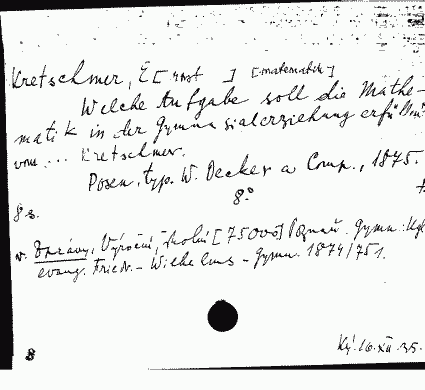 Kretschmer, E[rnst ] [matematik]
Welche Aufgabe soll die Mathe-
matik in der Gymnasialerziehung erfüllen?
vom ... Kretschmer.
Posen, typ. W. Decker a Comp., 1875.
8°
8 s.
v. Zprávy, Výroční, školní [75000] Poznaň. Gymn.
evang. Friedr.-Wilhelms-Gymn. 1874/75).
8
Ký. 16.XII.35.